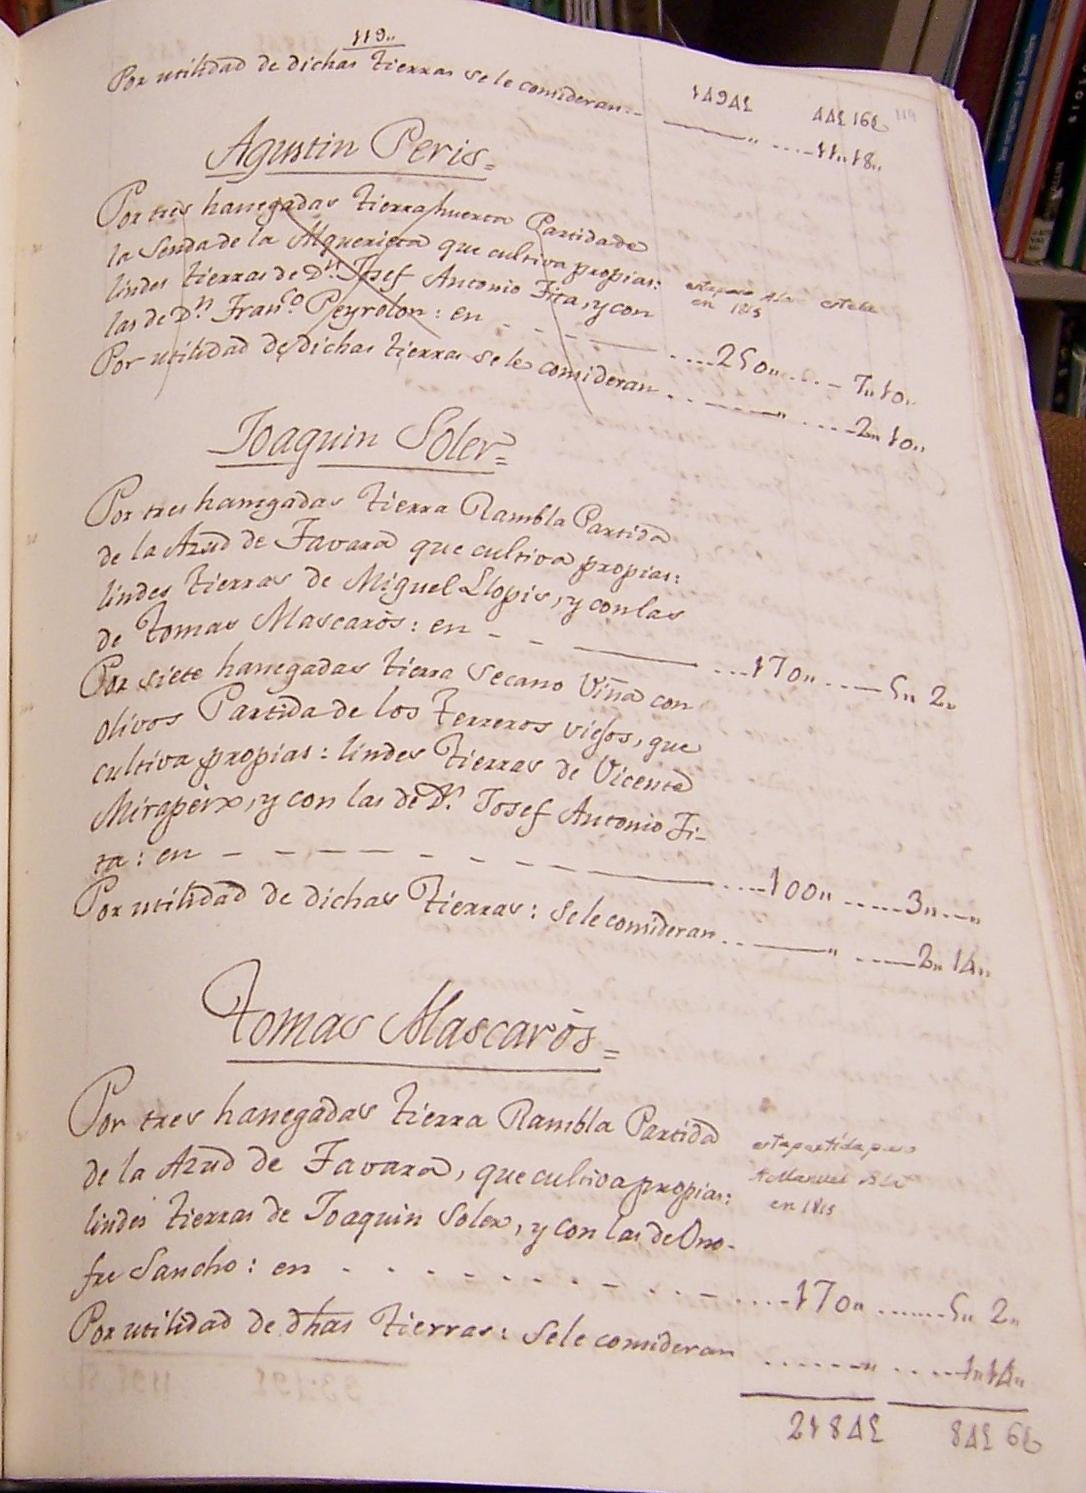 119..
Por utilidad de dichas tierras se le consideran..
1494£ 44£16s 119
" .... 11" 18"
Agustin Peris=
Por tres hanegadas tierra huerta Partida de
la Senda de la Alquerieta que cultiva propias:
lindes tierras de Dn. Josef Antonio Fita, y con
las de Dn. Franco. Peyrolon: en - - ....250"....- 7"10"
en 1815
Por utilidad de dichas tierras se le consideran ..----" ....2"10"
Joaquin Soler=
Por tres hanegadas tierra Rambla Partida
de la Azud de Favara que cultiva propias:
lindes tierras de Miguel Llopis, y con las
de Tomas Mascaròs: en - - ....170"....- 5" 2"
Por siete hanegadas tierra Secano Viña con
olivos Partida de los terreros viejos, que
cultiva propias: lindes tierras de Vicente
Mirapeix, y con las de Dn. Josef Antonio Fi-
ta: en - - - - - - - - ....100".....3"...."
Por utilidad de dichas tierras: se le consideran ..---" ....2"14"
Tomas Mascaròs=
Por tres hanegadas tierra Rambla Partida
de la Azud de Favara, que cultiva propias:
lindes tierras de Joaquin Soler, y con las de Ono-
fre Sancho: en - - - - - - - ....170"......5" 2"
esta partida paso
a Manuel
en 1815
Por utilidad de dhas tierras: se le consideran ......." ....1"14"
2184£ 84£ 6s